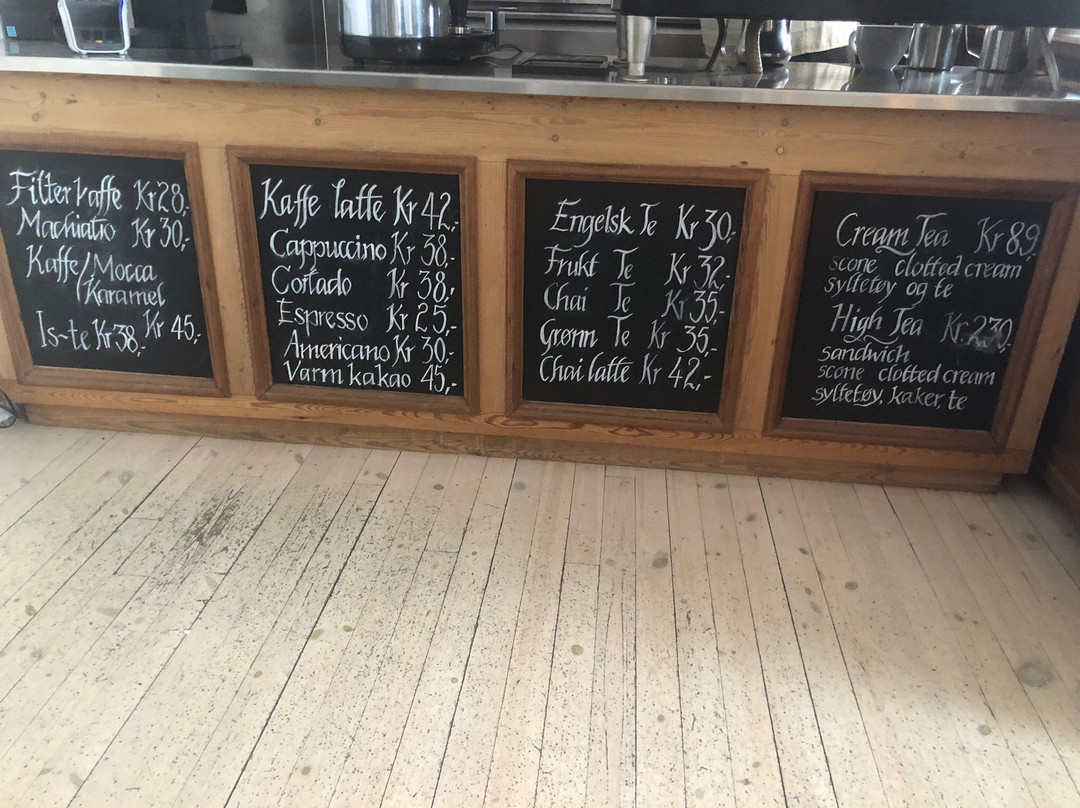 Filterkaffe Kr 28,-
Machiato Kr 30,-
Kaffe/Mocca
/Karamel
Kr 45,-
Is-te Kr 38,-
Kaffe latte Kr 42,-
Cappuccino Kr 38,-
Cortado Kr 38,-
Espresso Kr 25,-
Americano Kr 30,-
Varm kakao 45,-
Engelsk Te Kr 30,-
Frukt Te Kr 32,-
Chai Te Kr 35,-
Grønn Te Kr 35,-
Chai latte Kr 42,-
Cream Tea Kr 89,
scone clotted cream
syltetøy og te
High Tea Kr. 230,
sandwich
scone clotted cream
syltetøy, kaker, te